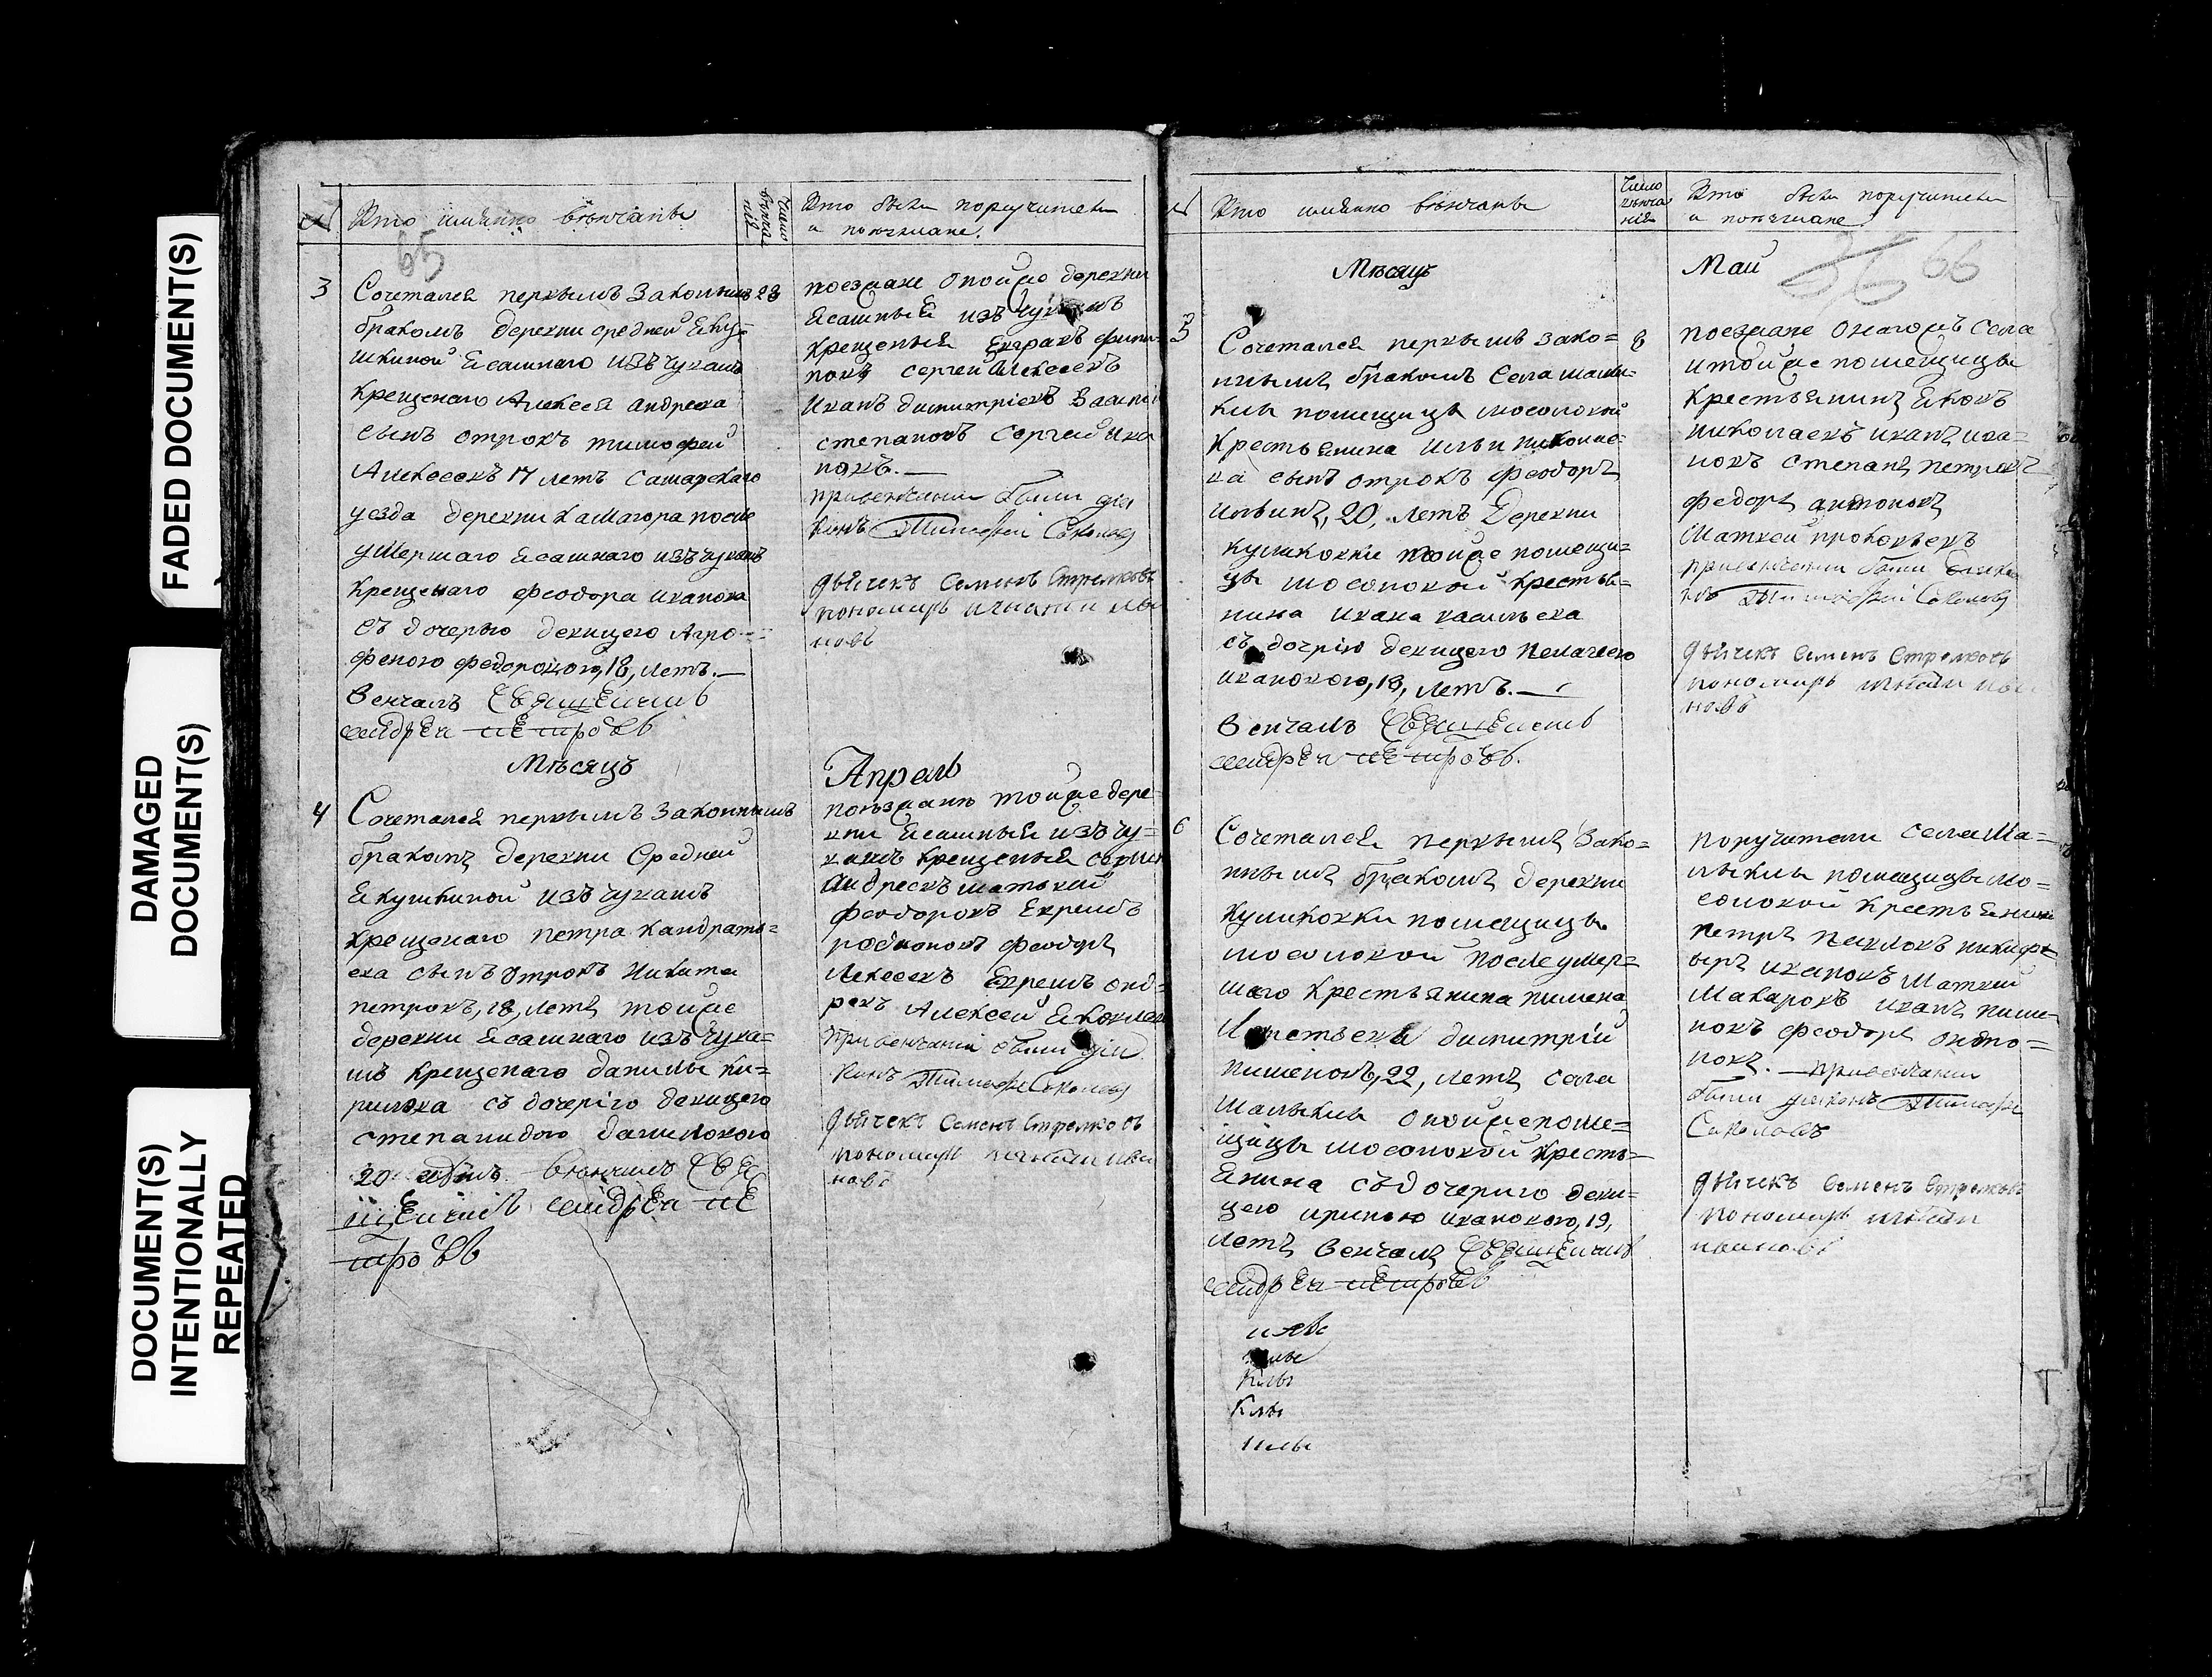 FADED DOCUMENT(S)
DAMAGED
DOCUMENT(S)
DOCUMENT(S)
INTENTIONALLY
REPEATED
№ Кто имянно вѣнчаны
Число венчания
Кто были поручители
и поезжане.
65
3 Сочетался первымъ Законнымъ 28
бракомъ деревни средней Яку=
шкиной Ясашнаго изъ чувашъ
крещенаго Алексея андреева
сынъ отрокъ тимофей
Алексеевъ 17 летъ Самарскаго
уезда деревни после
умершаго Ясашнаго изъ чувашъ
крещенаго феодора иванова
съ дочерью девицею Агро=
феною федоровою, 18, летъ.—
Венчалъ Священникъ
Андрей Петровъ
поезжане оной же деревни
Ясашныя изъ чувашъ
крещеныя
новъ сергей Алексеевъ
Иванъ димитриевъ Васи
степановъ Сергей Ива
новъ.—
при венчании были дья
конъ Тимофей Соколовъ
дьячекъ Семенъ Стрелковъ
пономарь игнатий ива
новъ
Мѣсяцъ
Апрель
4 Сочетался первымъ Законнымъ
бракомъ деревни Средней
Якушкиной изъ чувашъ
крещенаго петра кандрать=
ева сынъ отрокъ Никита
петровъ, 18, летъ той же
деревни Ясашнаго изъ чува=
шъ крещенаго данилы ки=
рилова съ дочерію девицею
степанидою даниловою
20 летъ вѣнчалъ Свя
щенникъ Андрей Пе
тровъ
поѣзжанѣ той же дере=
вни Ясашныя изъ чу=
вашъ крещеныя
Андреевъ матвей
феодоровъ Ефремъ
родионовъ феодоръ
Алексеевъ Ефремъ анд=
реевъ Алексей Яковлев
при венчании были дія
конъ Тимофей Соколовъ
дьячекъ Семенъ Стрелковъ
пономарь игнатий ива
новъ
№ Кто имянно вѣнчаны
Число венчания
Кто были поручители
и поѣзжане.
Мѣсяцъ
Май
36 66
5 Сочетался первымъ зако= 8
ннымъ бракомъ села малы=
клы помещицы мосоловой
Крестьянина Ильи
ва сынъ отрокъ феодоръ
ильинъ, 20, летъ Деревни
куликовки той же помещи=
цы мосоловой крестья=
нина ивана васильева
съ дочрію девицею пелагеею
ивановою, 18, летъ.—
Венчалъ Священникъ
Андрей Петровъ.
поезжане онагожъ села
и той же помещицы
крестьянинъ Яковъ
николаевъ иванъ ива=
новъ степанъ петровъ
федоръ антоновъ
Матвей прокофьевъ
при венчании были дьяко
нъ Тимофей Соколовъ
дьячекъ Семенъ Стрелковъ
пономарь игнатий ива
новъ
6 Сочетался первымъ Зако=
ннымъ бракомъ деревни
куликовки помещицы
мосоловой после умер=
шаго крестьянина пимена
димитрій
пименовъ, 22, летъ села
малыклы оной же поме=
щицы мосоловой кресть=
янина съ дочерию деви=
цею ириною ивановою, 19,
летъ Венчалъ Священникъ
Андрей Петровъ
поручители села Ма=
лыклы помещицы мо=
соловой крестьянинъ
петръ павловъ никиф=
оръ ивановъ Матвей
Макаровъ иванъ пиме=
новъ феодоръ анто=
новъ.— при венчании
были диаконъ Тимофей
Соколовъ
дьячекъ Семенъ Стрелковъ
пономарь игнатий
ивановъ